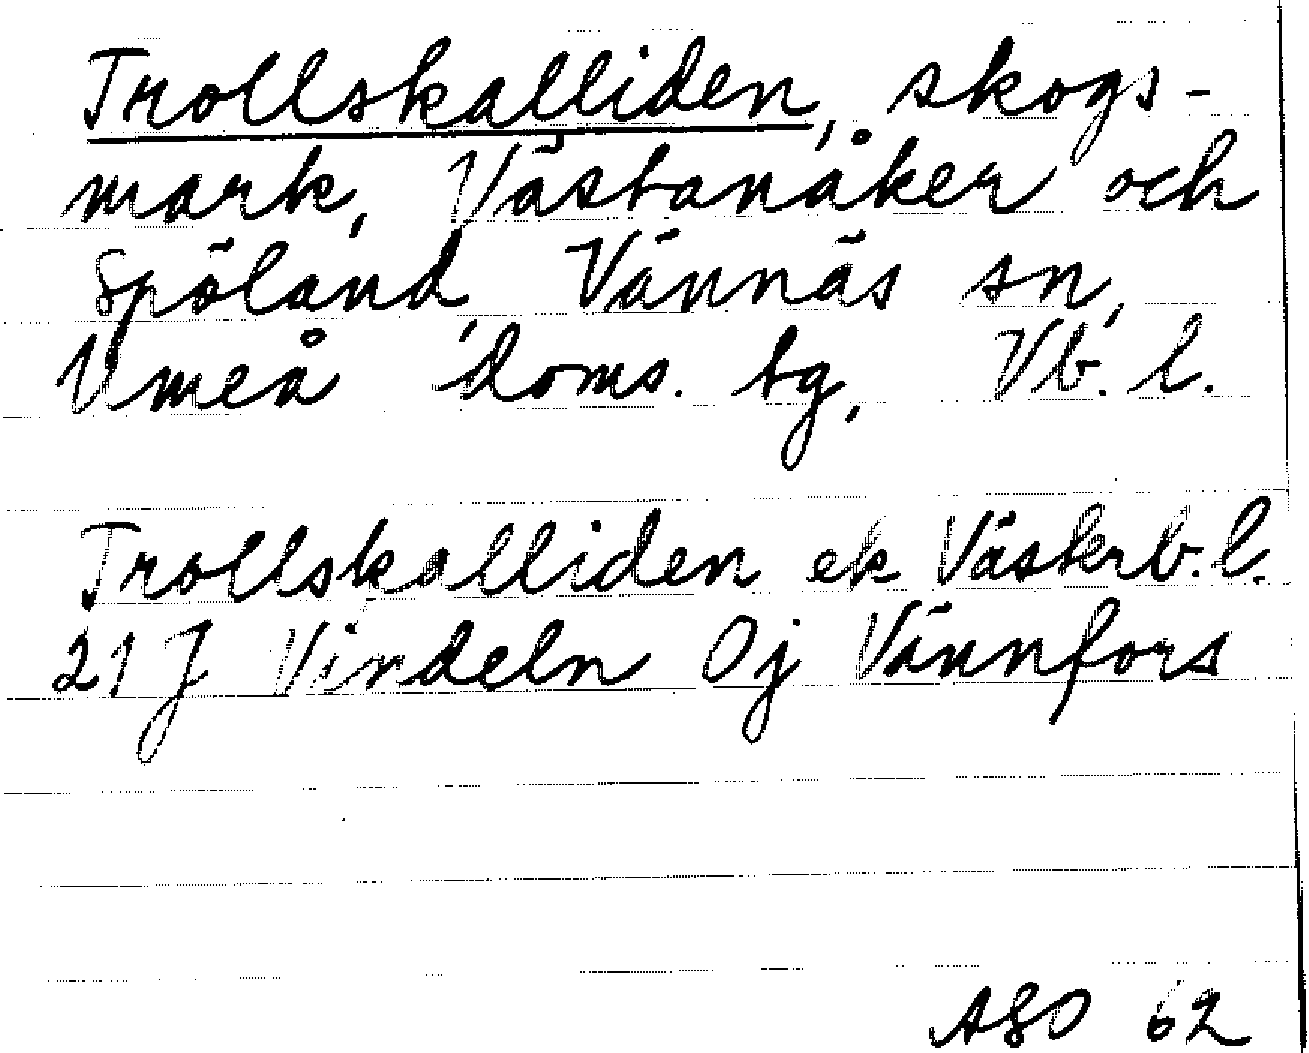 Trollskalliden, skogs-
mark, Västanåker och
Spöland, Vännäs sn,
Umeå doms. tg, Vb. l.
Trollskalliden ek Västerb. l.
21 J Vindeln 0j Vännfors
ASO 62